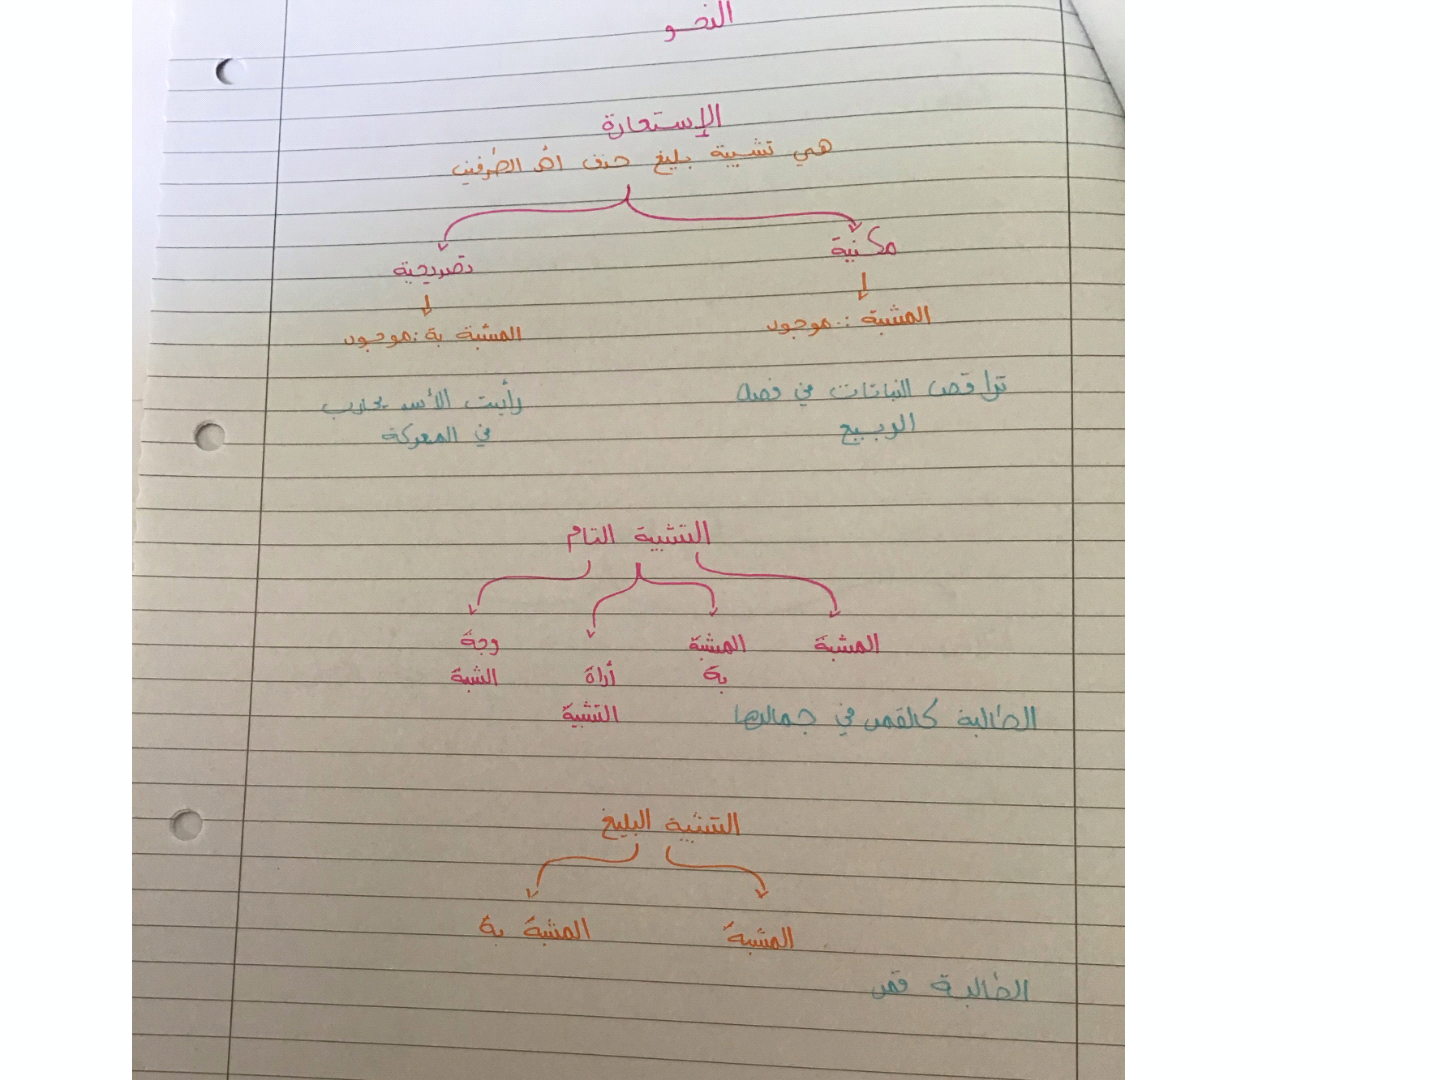 النحو
الإستعارة
هي تشبية بليغ حذف احد الطرفين
مكنية
تصريحية
المشبة : موجود
المشبة بة : موجود
تراقص النباتات في فصل
الربيع
رأيت الأسد يحارب
في المعركة
التشبية التام
المشبة
المشبة
بة
أداة
التشبية
وجة
الشبة
الطالبة كالقمر في جمالها
التشبية البليغ
المشبة
المشبة بة
الطالبة قمر